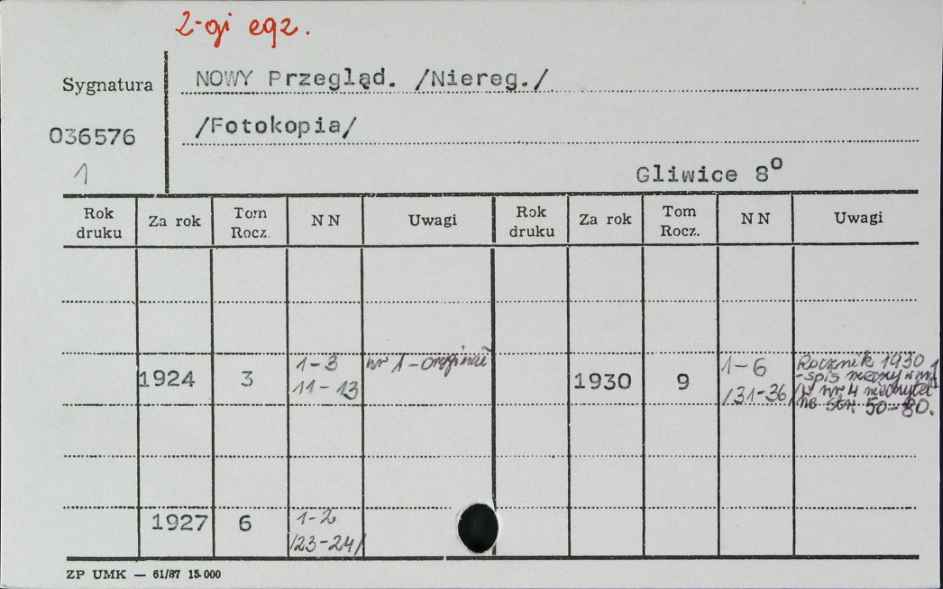 2-gi egz.
Sygnatura
NOWY Przegląd. /Niereg./
036576
/Fotokopia/
1
Gliwice 8°
Rok druku Za rok Tom Rocz. NN Uwagi Rok druku Za rok Tom Rocz. NN Uwagi
1924 3 1-3 11-13 nr 1-oryginał
1930 9 1-6 /31-36/ Rocznik 1930
-spis
w nr 4
na str. 50-80.
1927 6 1-2 /23-24/
ZP UMK — 61/87 15.000